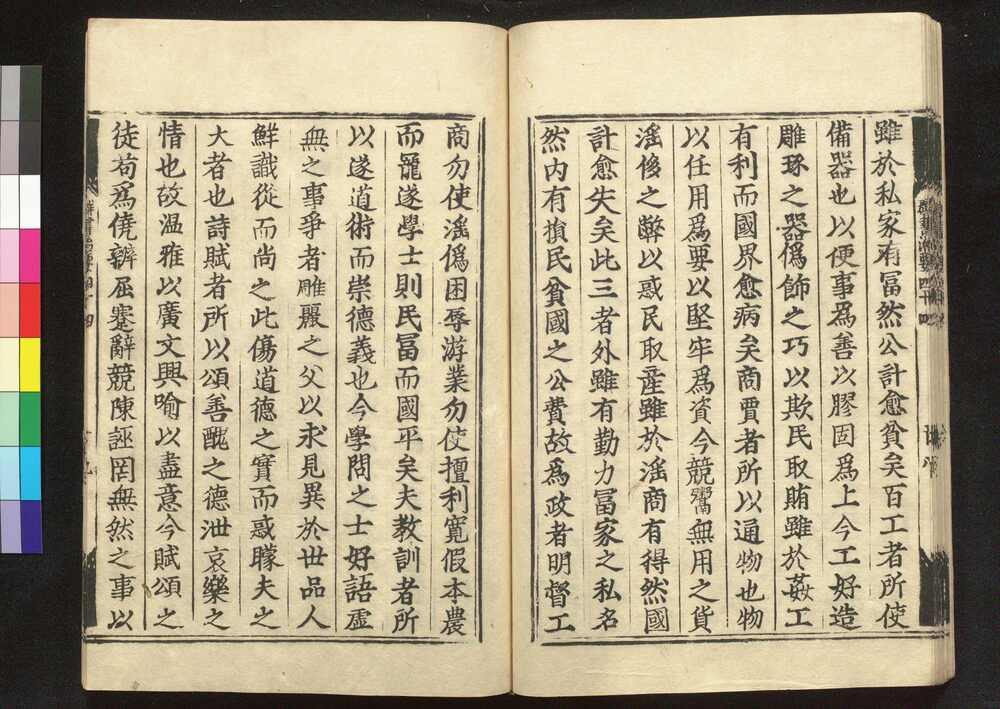 雖於私家有冨然公計愈貧矣百工者所使
備器也以便事爲善以膠固爲上今工好造
雕琢之器僞飾之巧以欺民取賄雖於姦工
有利而國界愈病矣商賈者所以通物也物
以任用爲要以堅牢爲資今競鬻無用之貨
滛侈之弊以惑民取産雖於滛商有得然國
計愈失矣此三者外雖有勤力冨家之私名
然内有損民貧國之公費故爲政者明督工
商勿使滛僞困辱游業勿使擅利寬假本農
而寵遂學士則民冨而國平矣夫教訓者所
以遂道術而崇德義也今學問之士好語虛
無之事爭者雕麗之父以求見異於世品人
鮮識從而尚之此傷道德之實而惑矇夫之
大者也詩賦者所以頌善醜之德泄哀樂之
情也故温雅以廣文興喻以盡意今賦頌之
徒苟爲僥辯屈蹇辭競陳誣罔無然之事以